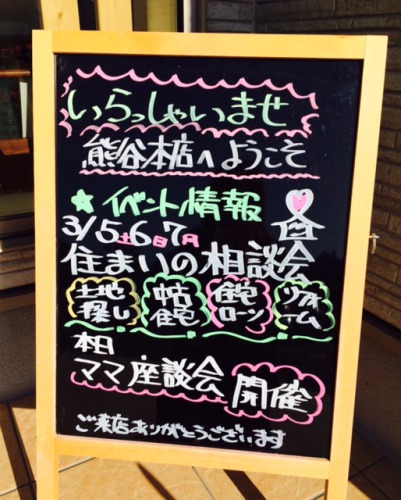 いらっしゃいませ
熊谷本店へようこそ
★イベント情報
3/5土6日7月
住まいの相談会
土地探し 中古住宅 住宅ローン リフォーム
本日
ママ座談会 開催
ご来店ありがとうございます